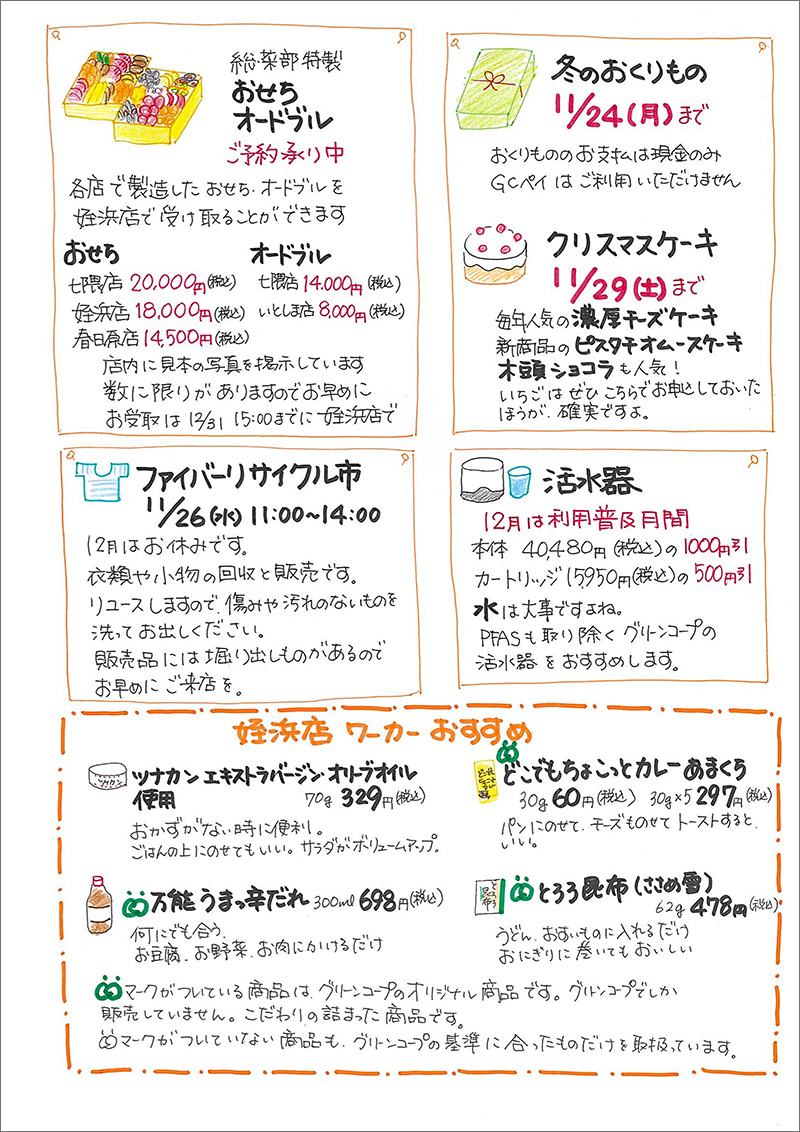 総菜部特製
おせち
オードブル
ご予約承り中
各店で製造した おせち・オードブルを
姪浜店で受け取ることができます
おせち
七隈店 20,000円(税込)
姪浜店 18,000円(税込)
春日原店 14,500円(税込)
オードブル
七隈店 14,000円(税込)
いとしま店 8,000円(税込)
店内に見本の写真を掲示しています
数に限りがありますのでお早めに
お受取は 12/31 15:00までに 姪浜店で
冬のおくりもの
11/24(月)まで
おくりもののお支払は現金のみ
GCペイはご利用いただけません
クリスマスケーキ
11/29(土)まで
毎年人気の濃厚チーズケーキ
新商品のピスタチオムースケーキ
木頭ショコラも人気!
いちごはぜひこちらでお申込しておいた
ほうが、確実ですよ。
ファイバーリサイクル市
11/26(水) 11:00~14:00
12月はお休みです。
衣類や小物の回収と販売です。
リユースしますので、傷みや汚れのないものを
洗ってお出しください。
販売品には堀り出しものがあるので
お早めにご来店を。
活水器
12月は利用普及月間
本体 40,480円(税込)の1000円引
カートリッジ 15,950円(税込)の500円引
水は大事ですよね。
PFASも取り除くグリーンコープの
活水器をおすすめします。
姪浜店 ワーカーおすすめ
ツナカン
ツナカン エキストラバージン・オリーブオイル
使用 70g 329円(税込)
おかずがない時に便利。
ごはんの上にのせてもいい。サラダがボリュームアップ。
どこでもちょこっとカレーあまくち
30g 60円(税込) 30g×5 297円(税込)
パンにのせて、チーズものせてトーストすると、
いい。
万能うまっ辛だれ 300ml 698円(税込)
何にでも合う。
お豆腐、お野菜、お肉にかけるだけ
とろろ昆布
とろろ昆布(ささめ雪)
62g 478円(税込)
うどん、おすいものに入れるだけ
おにぎりに巻いてもおいしい
マークがついている商品は、グリーンコープのオリジナル商品です。グリーンコープでしか
販売していません。こだわりの詰まった商品です。
マークがついていない商品も、グリーンコープの基準に合ったものだけを取扱っています。